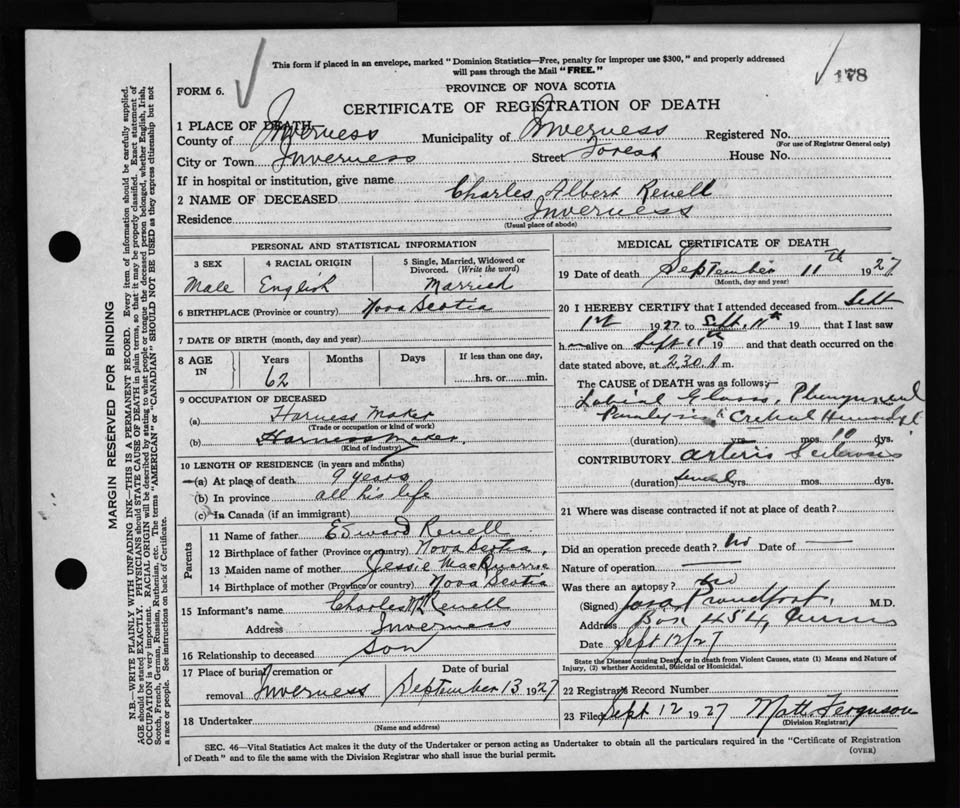 This form if placed in an envelope, marked "Dominion Statistics—Free, penalty for improper use $300," and properly addressed
will pass through the Mail "FREE."
178
FORM 6.
PROVINCE OF NOVA SCOTIA
CERTIFICATE OF REGISTRATION OF DEATH
1 PLACE OF DEATH
County of Inverness Municipality of Inverness Registered No.
(For use of Registrar General only)
City or Town Inverness Street Forest House No.
If in hospital or institution, give name
2 NAME OF DECEASED Charles Albert Renell
Residence Inverness
(Usual place of abode)
PERSONAL AND STATISTICAL INFORMATION
3 SEX 4 RACIAL ORIGIN 5 Single, Married, Widowed or
Divorced. (Write the word)
Male English Married
6 BIRTHPLACE (Province or country) Nova Scotia
7 DATE OF BIRTH (month, day and year)
8 AGE IN Years Months Days If less than one day,
62 hrs. or min.
9 OCCUPATION OF DECEASED
(a) Harness Maker
(Trade or occupation or kind of work)
(b) Harness maker.
(Kind of industry)
10 LENGTH OF RESIDENCE (in years and months)
(a) At place of death 9 years
(b) In province all his life
(c) In Canada (if an immigrant)
Parents
11 Name of father Edward Renell
12 Birthplace of father (Province or country) Nova Scotia,
13 Maiden name of mother Jessie MacQuarrie
14 Birthplace of mother (Province or country) Nova Scotia
15 Informant's name Charles Renell
Address Inverness
16 Relationship to deceased Son
17 Place of burial, cremation or Date of burial
removal Inverness September 13 1927
18 Undertaker
MEDICAL CERTIFICATE OF DEATH
19 Date of death September 11th 1927
(Month, day and year)
20 I HEREBY CERTIFY that I attended deceased from Sept
1st 1927 to Sept. 11th 19 that I last saw
h alive on Sept 11th 19 and that death occurred on the
date stated above, at 2.30 m.
The CAUSE of DEATH was as follows:—
Labial Glosso Pharyngeal
Paralysis
(duration) yrs. mos. 10 dys.
CONTRIBUTORY arterio Sclerosis
(duration) several yrs. mos. dys.
21 Where was disease contracted if not at place of death?
Did an operation precede death? No Date of —
Nature of operation —
Was there an autopsy? No
(Signed) M.D.
Address Box 454,
Date Sept 12/27
State the Disease causing Death, or in death from Violent Causes, state (1) Means and Nature of
Injury, (2) whether Accidental, Suicidal or Homicidal.
22 Registrar's Record Number
23 Filed Sept 12 1927 Matt. Ferguson
(Division Registrar)
SEC. 46—Vital Statistics Act makes it the duty of the Undertaker or person acting as Undertaker to obtain all the particulars required in the "Certificate of Registration
of Death" and to file the same with the Division Registrar who shall issue the burial permit.
(OVER)
MARGIN RESERVED FOR BINDING
N.B.—WRITE PLAINLY WITH UNFADING INK—THIS IS A PERMANENT RECORD. Every item of information should be carefully supplied.
AGE should be stated EXACTLY. PHYSICIANS should STATE CAUSE OF DEATH in plain terms, so that it may be properly classified. Exact statement of
OCCUPATION is very important. RACIAL ORIGIN will be described by stating to what people or tongue the deceased person belonged, whether English, Irish,
Scotch, French, German, Russian, Ruthenian, etc. The terms "AMERICAN" or "CANADIAN" SHOULD NOT BE USED as they express citizenship but not
a race or people. See instructions on back of Certificate.